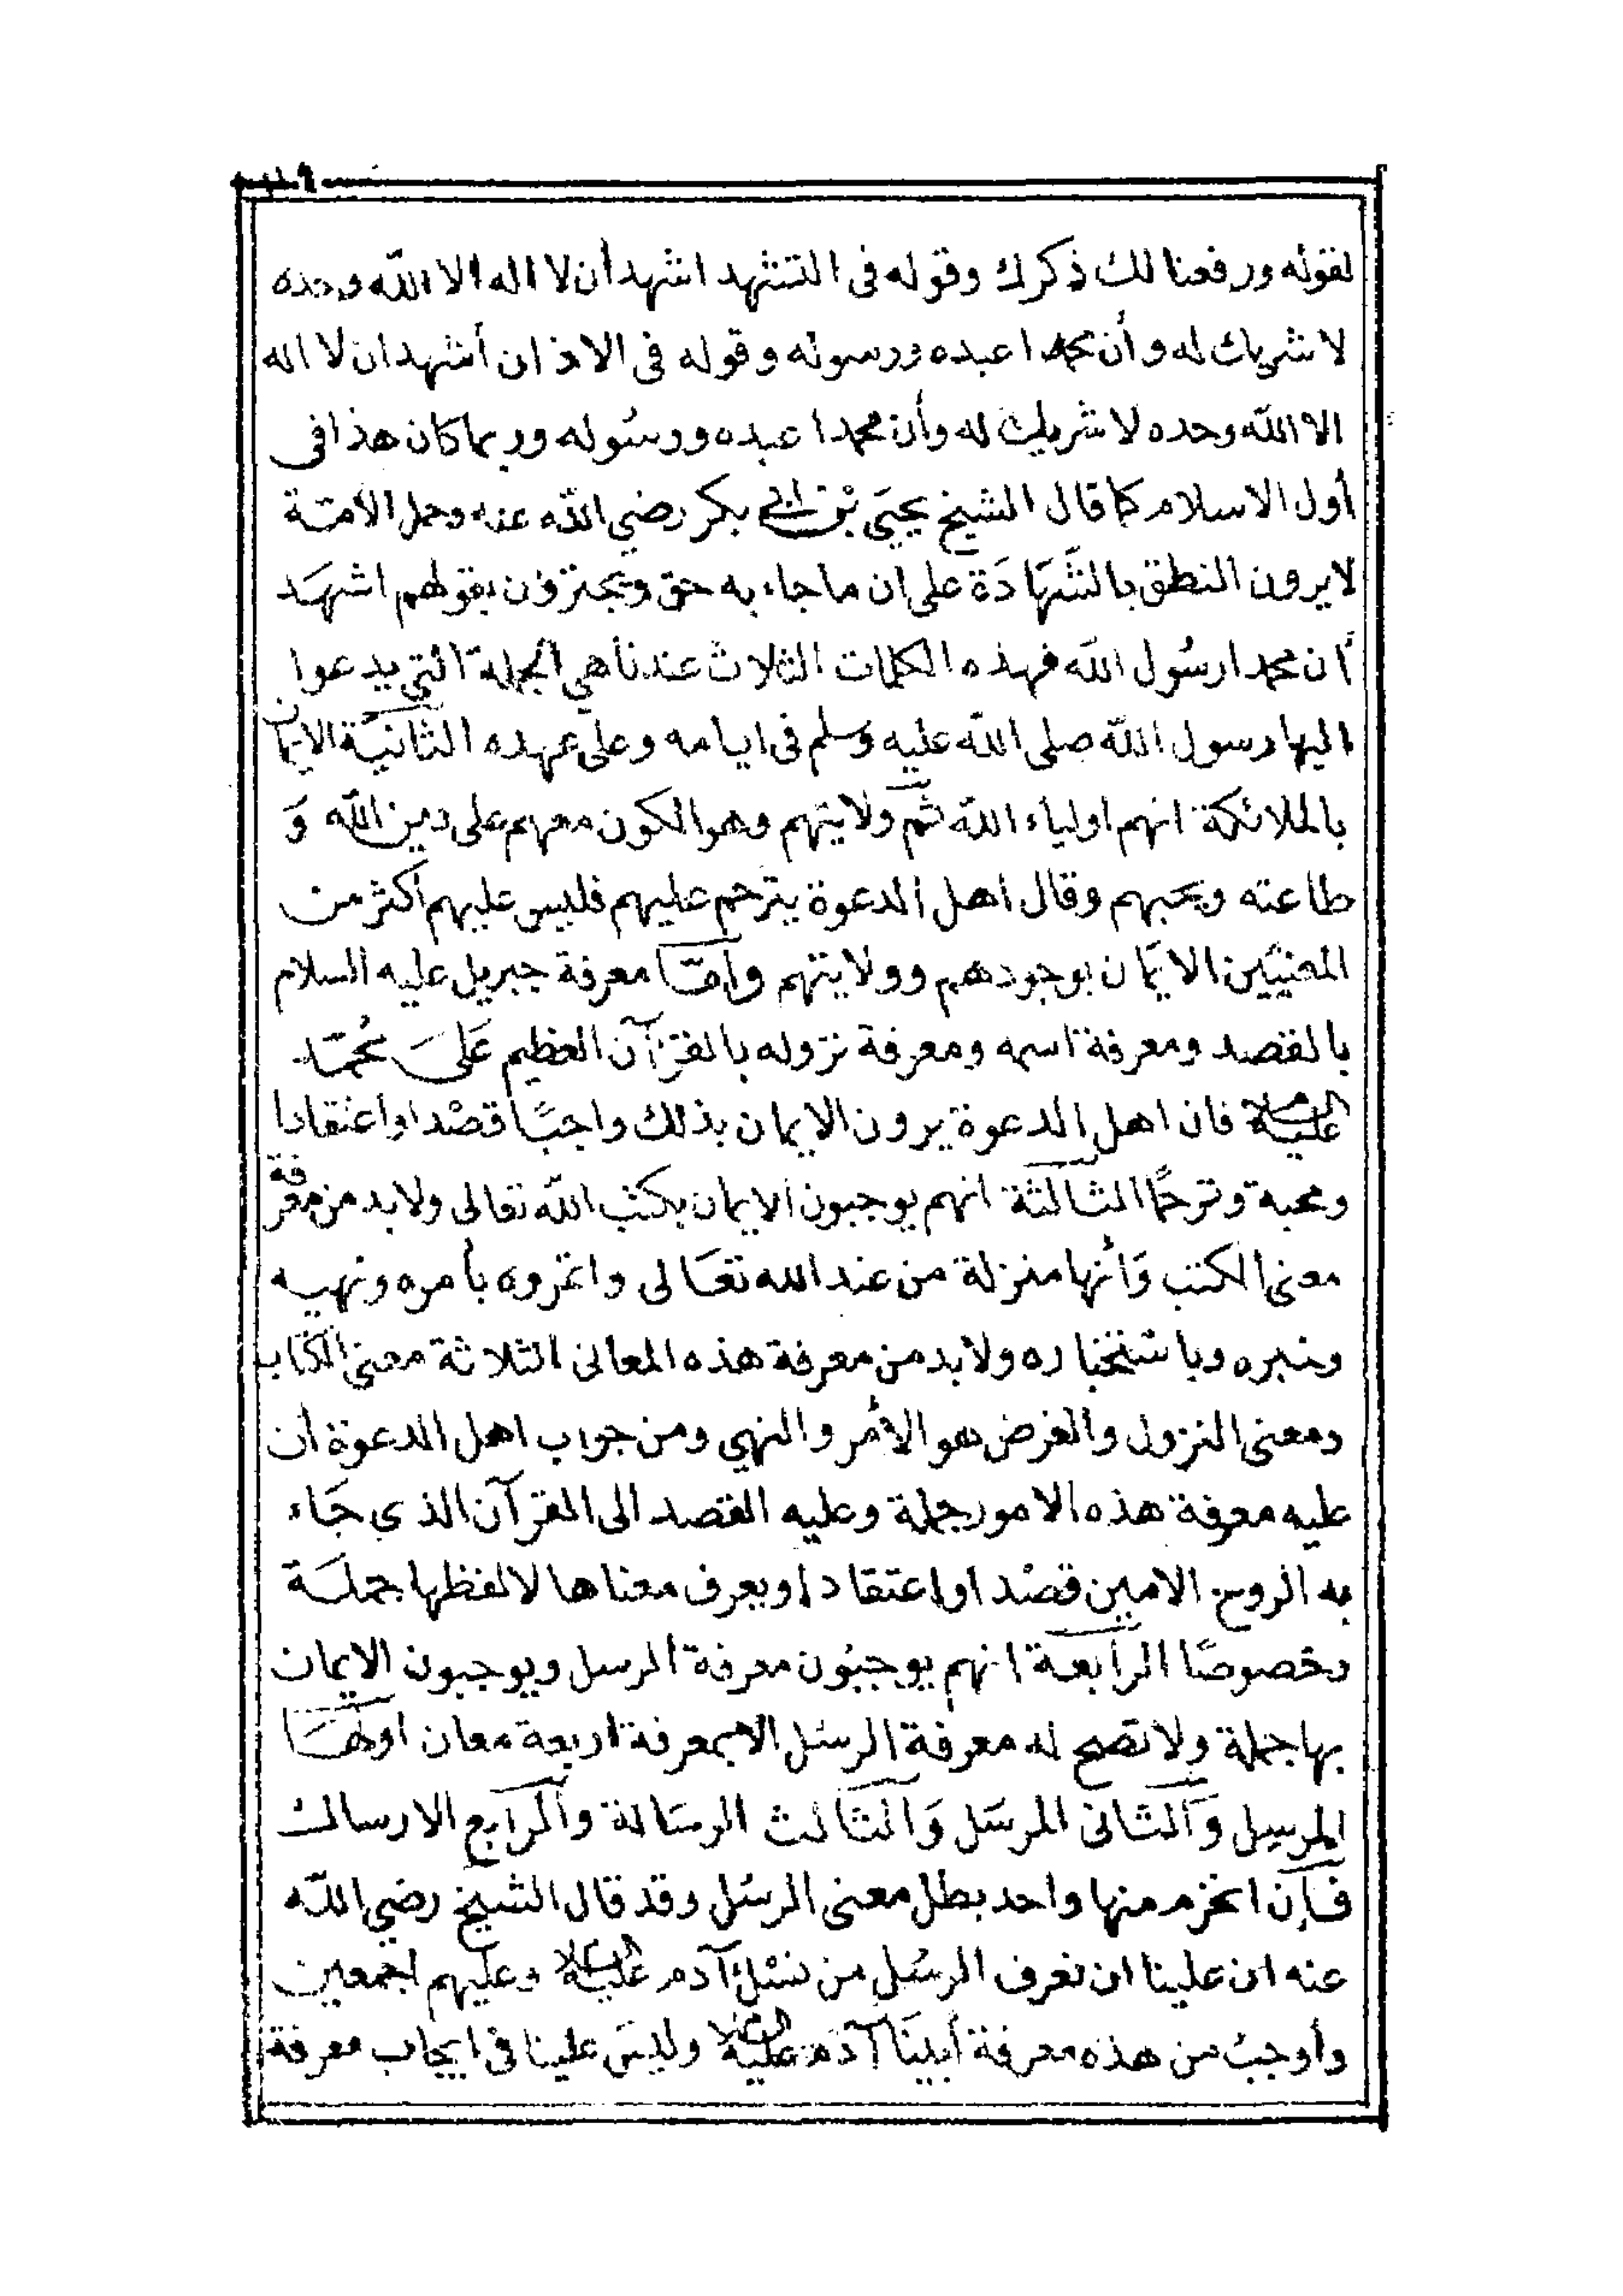 لقوله ورفعنا لك ذكرك وقوله في التشهد اشهد أن لا اله الا الله وحده
لا شريك له وأن محمدا عبده ورسوله وقوله في الاذان أشهد ان لا اله
الا الله وحده لا شريك له وأن محمدا عبده ورسُوله وربما كان هذا في
أول الاسلام كما قال الشيخ يحيَى بْن ابي بكر رضي الله عنه وجل الأمّة
لا يرون النطق بالشَّهَادَة على ان ما جاء به حق ويجتزؤن بقولهم اشهَد
أن محمدا رسُول الله فهذه الكلمات الثلاث عندنا هي الجملة التي يدعوا
اليها رسول الله صلى الله عليه وسلم في ايامه وعلى عهده الثانيَة الايمان
بالملائكة انهم اولياء الله ثم ولايتهم وهو الكون معهم على دين الله وَ
طاعته ونحبهم وقال اهل الدعوة يترحم عليهم فليس عليهم أكثر من
المعنيَين الايمَان بوجودهم وولايتهم وأمّا معرفة جبريل عليه السلام
بالقصد ومعرفة اسمه ومعرفة نزوله بالقرآن العظيم عَلىَ مُحمّد
عليه السلام فان اهل الدعوة يرون الايمان بذلك واجبًا قصْدا واعتقادا
ومحبة وترحمًا الثالثة انهم يوجبون الايمان بكتب الله تعالى ولابد من معرفة
معنى الكتب وَأنها منزلة من عند الله تعَالى وا بأمره ونهيه
وخبره وباستخباره ولابد من معرفة هذه المعاني الثلاثة معنى الكتاب
ومعنى النزول والغرض هو الأمر والنهي ومن جواب اهل الدعوة أن
عليه معرفة هذه الامور جملة وعليه القصد الى القرآن الذي جَاء
به الروح الامين قصْدا واعتقادا ويعرف معناها لا لفظها جملَة
وخصوصًا الرابعة انهم يوجبُون معرفة الرسل ويوجبون الايمان
بها جملة ولا تصح له معرفة الرسُل الا بمعرفة اربعة معان اولهَا
المرسِل وَالثاني المرسَل وَالثالث الرسَالة والرابع الارسال
فإن انخرم منها واحد بطل معنى الرسُل وقد قال الشيخ رضي الله
عنه ان علينا ان نعرف الرسُل من نسْل آدم عليه السلام وعليهم اجمعين
وأوجبُ من هذه معرفة أبينَا آدَم عليه السلام وليسَ علينا في ايجاب معرفة